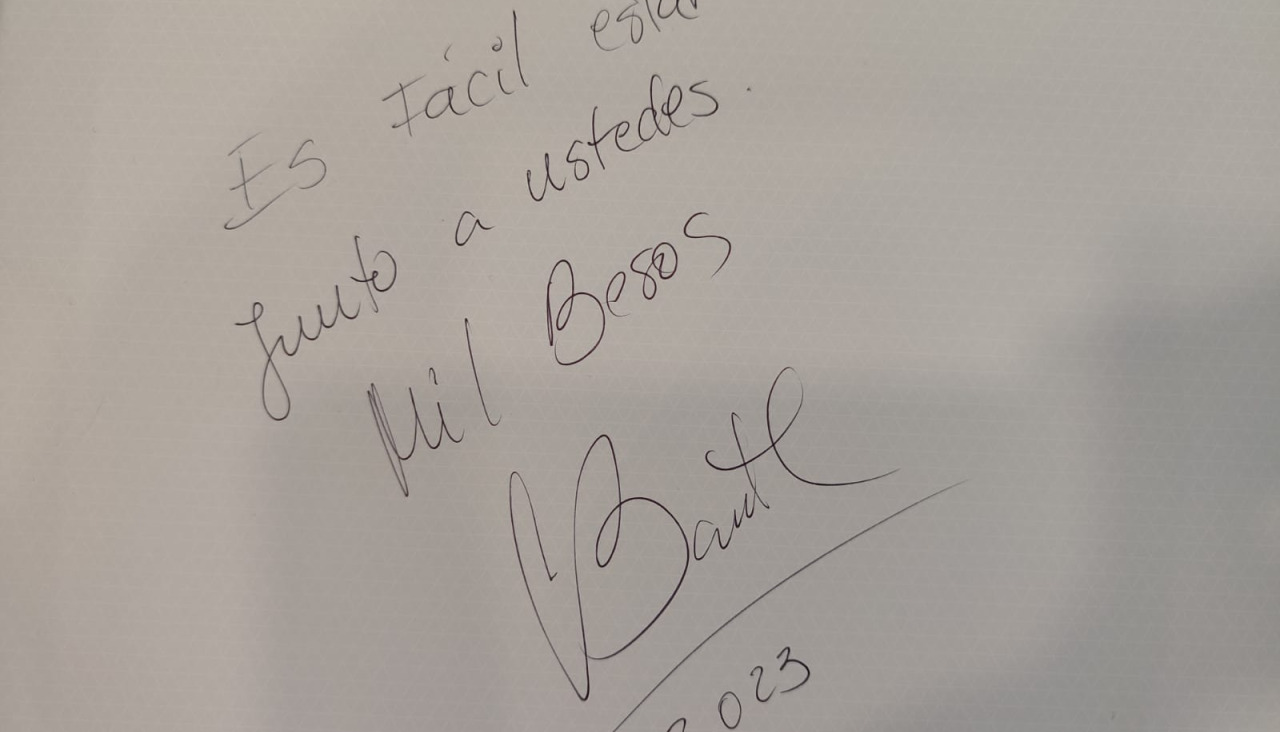 Es Fácil estar
Junto a ustedes.
Mil Besos
2023